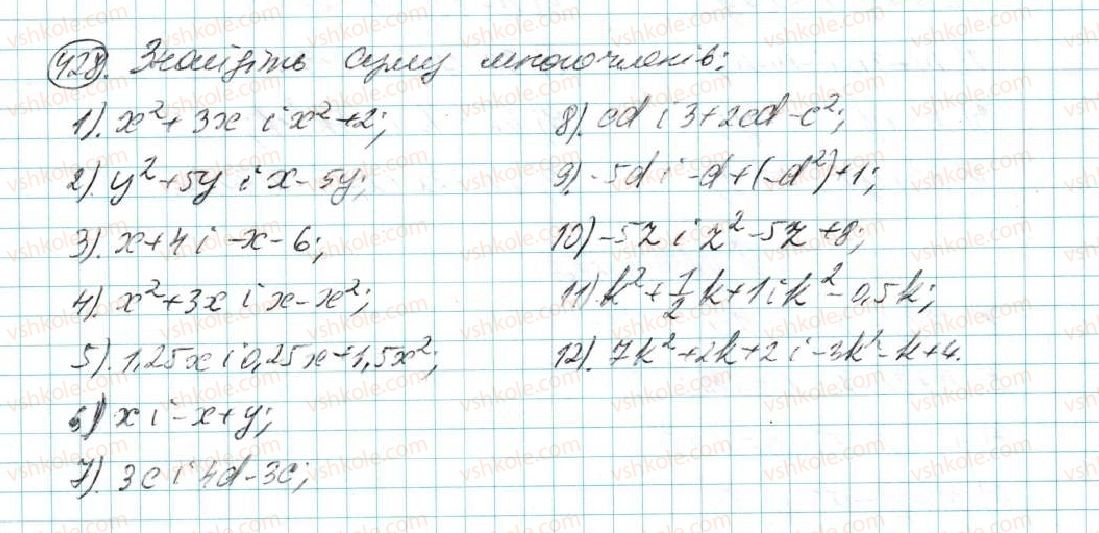 428. Знайдіть суму многочленів:
1). x² + 3x і x² + 2;
2). y² + 5y і x - 5y;
3). x + 4 і -x - 6;
4). x² + 3x і x - x²;
5). 1,25x і 0,25x - 1,5x²;
6) x і -x + y;
7). 3c і 4d - 3c;
8). cd і 3 + 2cd - c²;
9). -5d і -d + (-d²) + 1;
10) -5z і z² - 5z + 8;
11) k² + 1/2 k + 1 і k² - 0,5k;
12). 7k² + 2k + 2 і -3k² - k + 4.